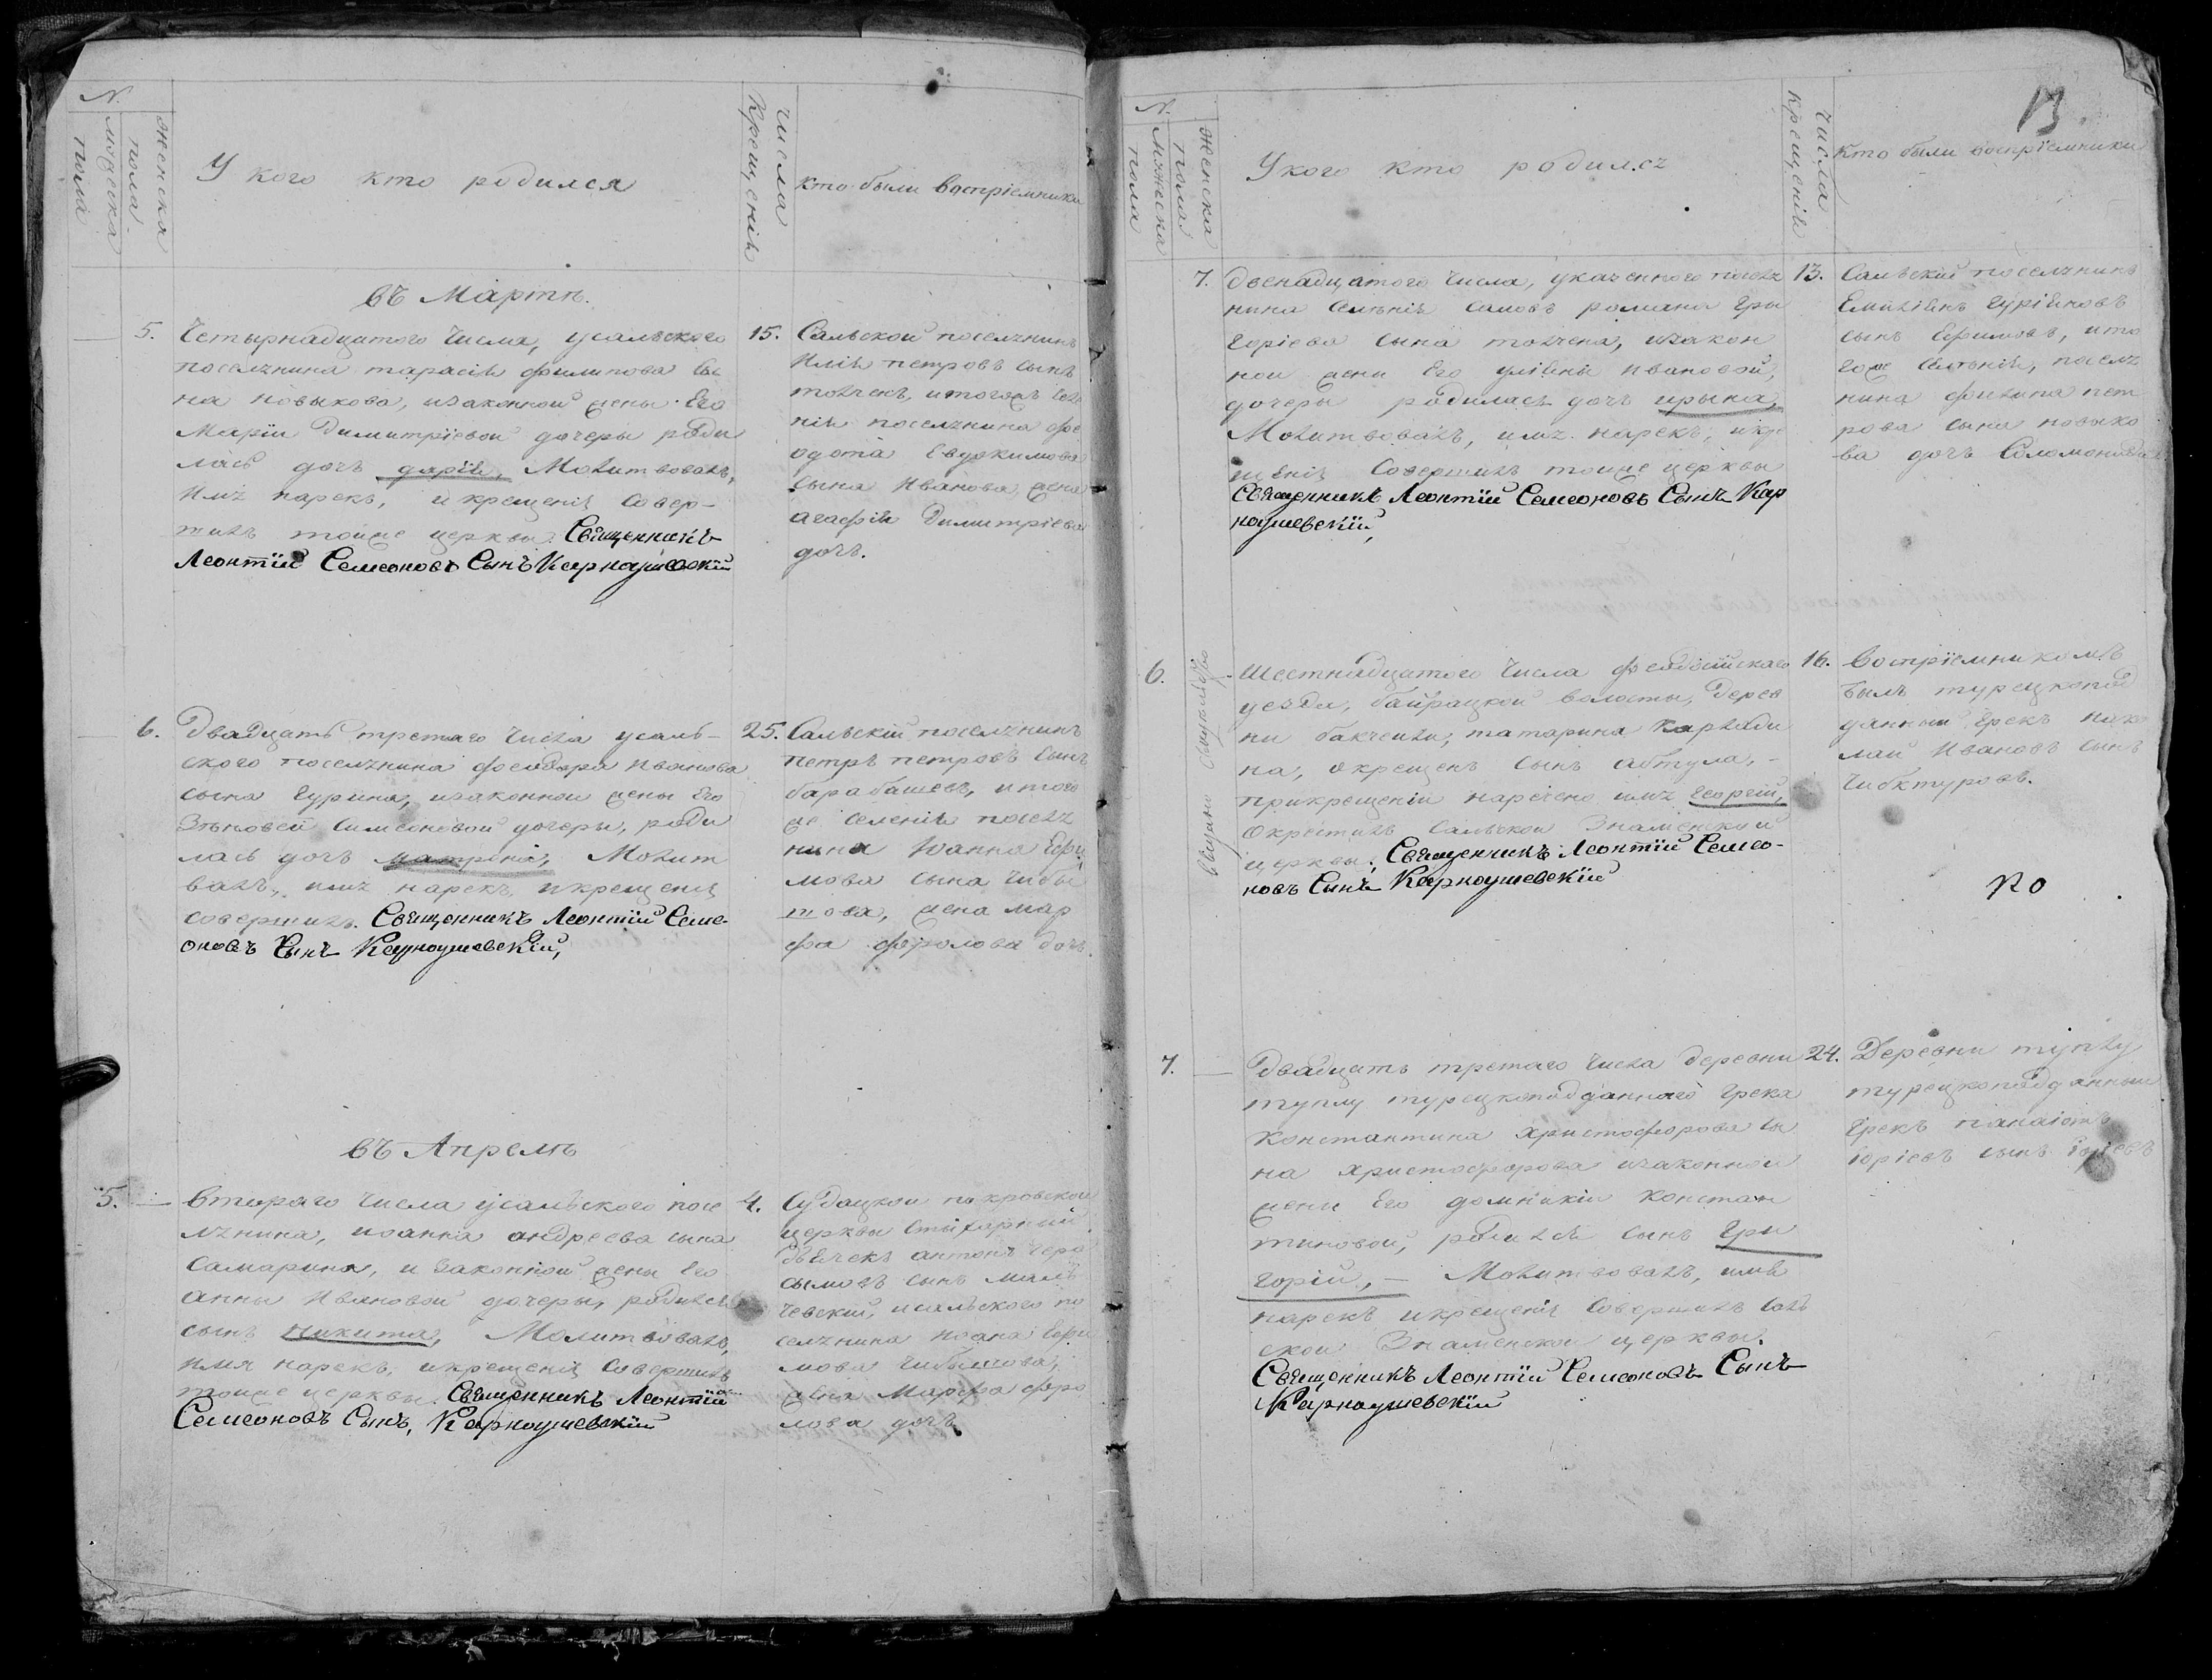 N.
мужеска пола
женска пола
У кого кто родился
числа крещенія
кто были воспріемники
въ Мартѣ.
5. Четырнадцатого числа, усальского
поселянина тарасія филипова сы
на новыкова, изаконной жены Его
Маріи димитріевой дочеры роди
лась дочь дарія, Молитвовалъ,
имя нарекъ, и крещеніе совер-
шилъ тоиже церквы Священникъ
Леонтій Семеоновъ Сынъ Карнаушевскій
15. Сальской поселянинъ
Илія петровъ сынъ
итогожъ селе
нія поселянина фе
одота Евдокимова
сына Иванова жена
агафія димитріева
дочь.
6. Двадцать третаго числа усаль-
ского поселянина феодора Иванова
сына гурина, изаконной жены Его
Зѣновей симеоновой дочеры, роди
лась дочь матрона, Молит
валъ, имя нарекъ, икрещеніе
совершилъ. Священникъ Леонтій Семе-
оновъ Сынъ Карноушевскій,
25. Сальскій поселянинъ
петръ петровъ сынъ
барабашевъ, итого
же селенія посел
нина Іоанна Ефи
мова сына чибы
шова, жена мар
фа фролова дочь.
въ Апрелѣ
5. Второго числа усальского посе
лянина, иоанна андреева сына
Самарина, и законной жены Его
анны Ивановой дочеры, родился
сынъ никита, Молитвовалъ,
имя нарекъ, икрещеніе Совершилъ
тоиже церквы. Священникъ Леонтій
Семеоновъ Сынъ, Карноушевскій
4. Судацкой покровской
церквы стихарный
дьячекъ антонъ гера
сымовъ сынъ
исальского по
селянина иоана Ефи
мова чибышова,
жена Марфа фро
лова дочь
13.
N.
мужска пола
женска пола
У кого кто родился
числа крещенія
кто были воспріемники
7. двенадцатого числа, указенного посел
нина селенія саловъ романа гры
горіева сына изакон
ной жены Его уліяны Ивановой,
дочеры родилась дочь ирына,
Молитвовалъ, имя нарекъ, икре
щеніе Совершилъ тоиже церквы
Священникъ Леонтій Семеоновъ Сынъ Кар
наушевскій,
13. Сальский поселянинъ
Емиліянъ гуріяновъ
сынъ Ефимовъ, ито
гоже селенія, посел
нина филипа пет
рова сына новыко
ва дочь Соломонида
6. Шестнадцатого числа феодосійскаго
уезда, байрацкой волосты, дерев
ни бакчеили, татарина
на, окрещенъ сынъ абтула, -
прикрещеніи наречено имя георгій,
окрестилъ сальской Знаменской
церквы. Священникъ Леонтій Семео-
новъ Сынъ Карноушевскій
16. Воспріемникомъ
былъ турецкопод
данный грекъ нико
лай Ивановъ сынъ
7. Двадцать третаго числа деревни
туплу турецкоподданного грека
константина христофорова сы
на христофорова изаконной
жены Его домникіи констан
тиновой, родился сынъ гри
горій, - Молитвовалъ, имя
нарекъ икрещеніе совершилъ саль
ской Знаменской церквы.
Священникъ Леонтій Семеоновъ Сынъ
Карноушевскій
24. Деревни туплу
турецкоподданный
грекъ панаіотъ
юріевъ сынъ юріевъ